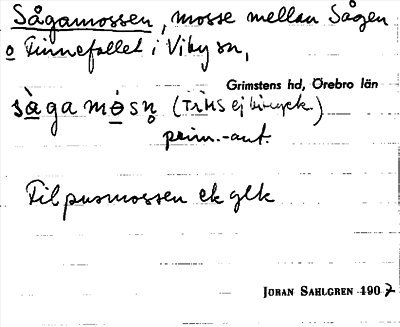 Sågamossen, mosse mellan Sågen
o Finnefallet i Viby sn,
Grimstens hd, Örebro län
sàga mósn̥ (
prim.-ant.
Filpusmossen ek glk
JÖRAN SAHLGREN 1907